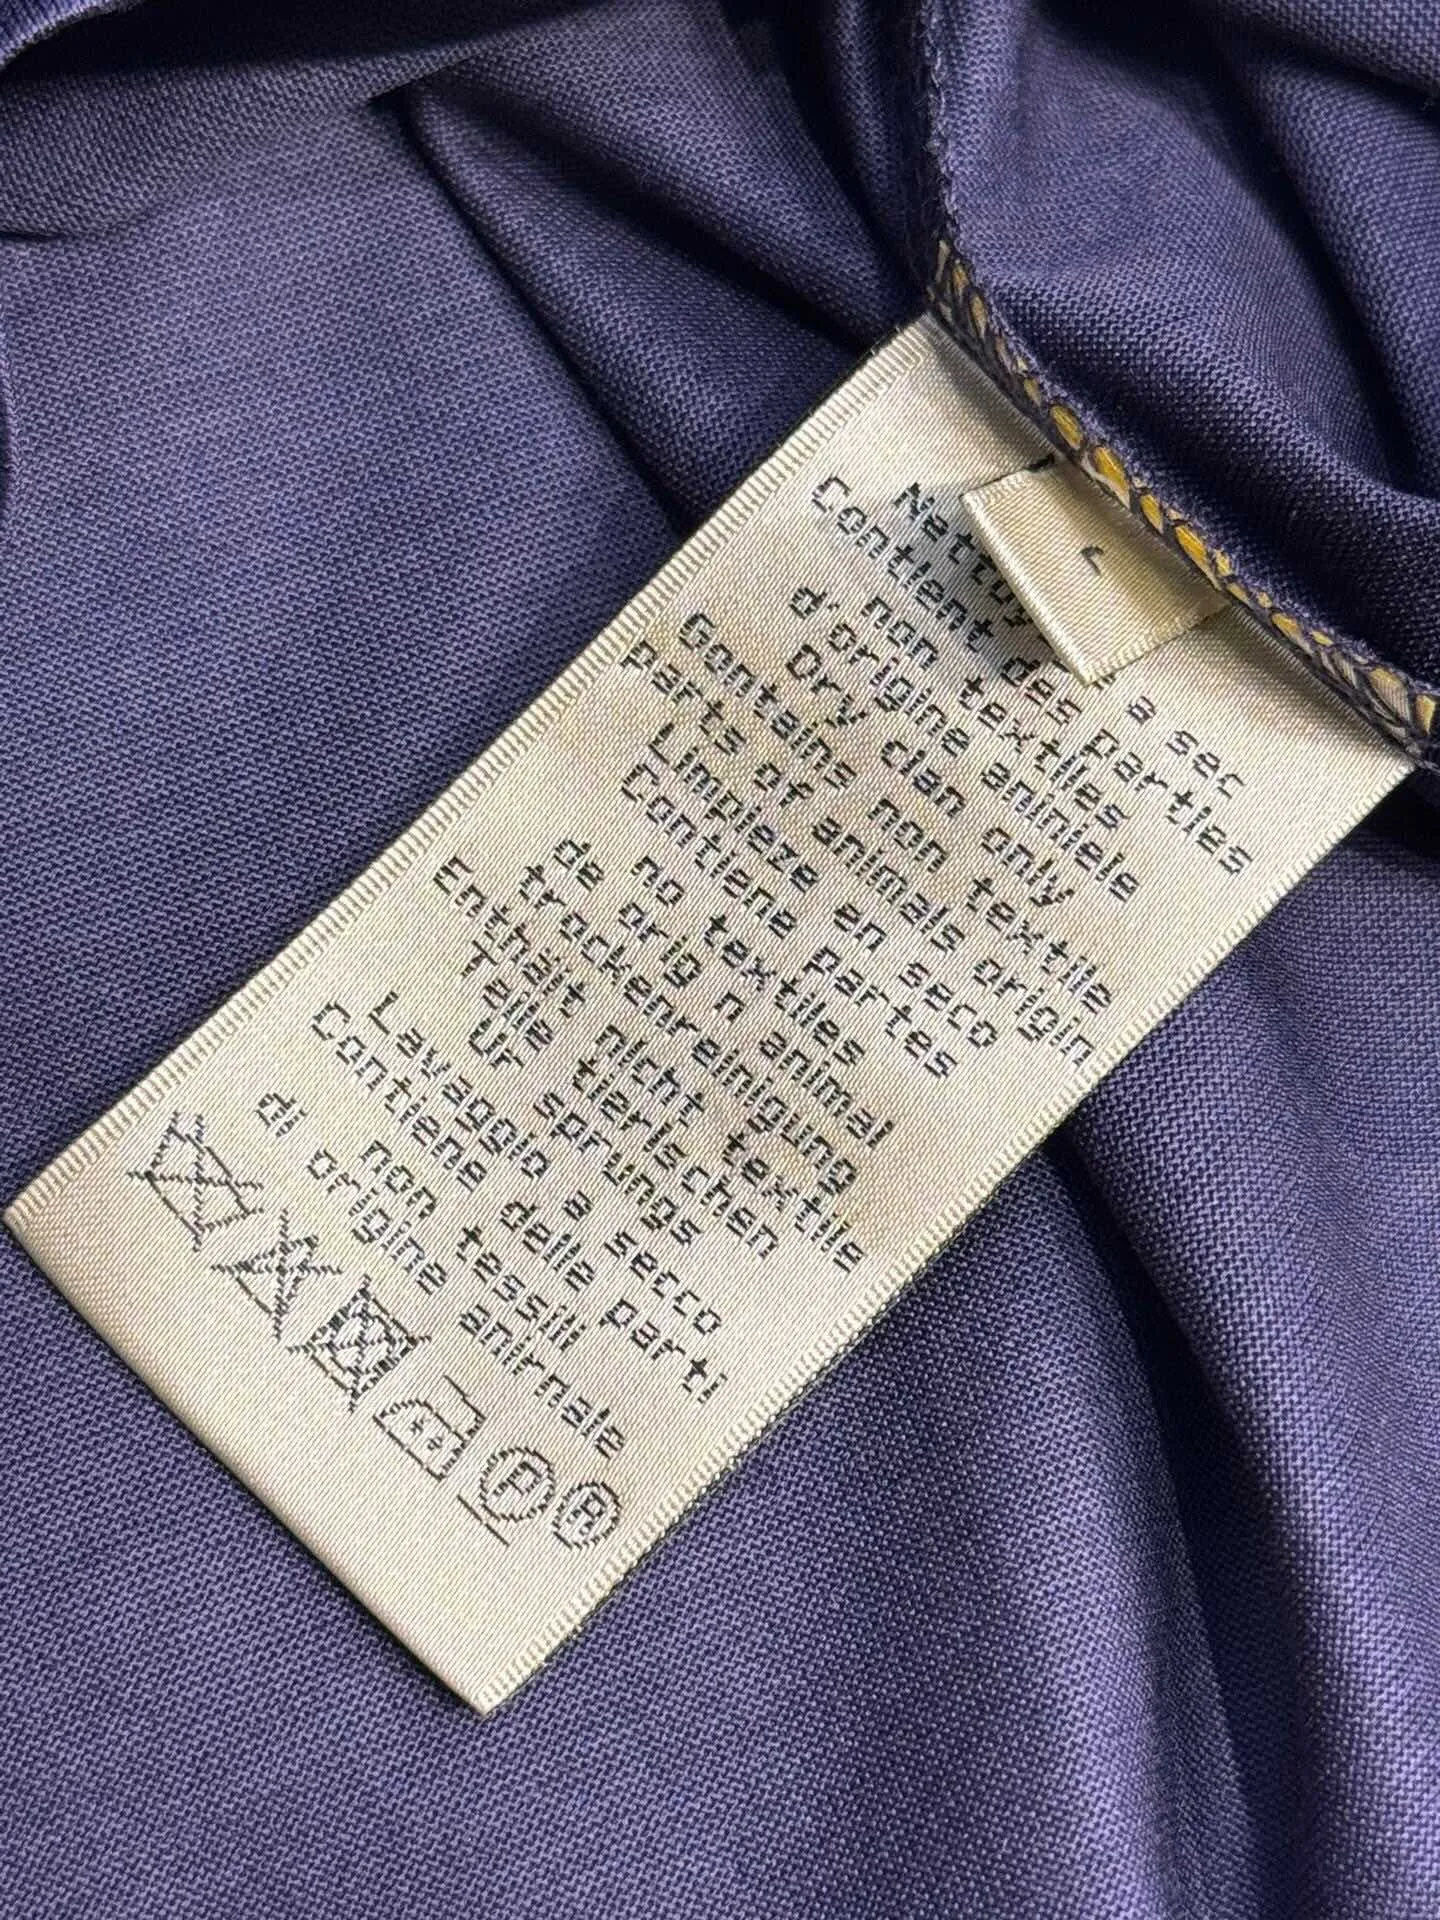 L
Nettoy a sec
Contient des parties
non textiles
d'origine animiele
Dry clan only
Gontains non textile
parts of animals origin
Limpieze en seco
Contiene partes
de no textiles
de orig n animal
trockenreinigung
Enthält nicht textile
Teile tierischen
Ur sprungs
Lavaggio a secco
Contiene delle parti
di non tessili
di origine anirnale
P R